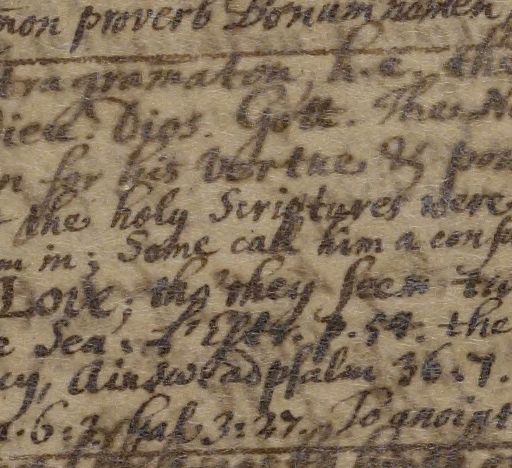 mon proverb Bonum nomen
tragramaton, h.e. tha
Dieu. Dios. Gott. The N
for his vertue & pow
the holy Scriptures were
in; Some call him a con
Loix; tho' they seem tu
Sea. the
cy, Ainsw. ad psalm 36.7.
6:2. Gal 3:27. To anoint